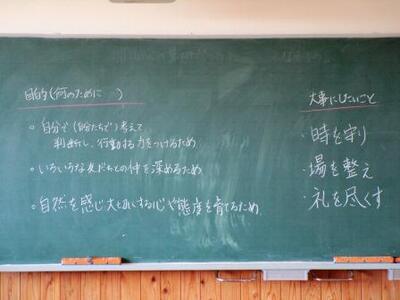 目的(何のために　)
○自分で(自分たちで)考えて
判断し、行動する力をつけるため
○いろいろな友だちとの仲を深めるため
○自然を感じ大切にする心や態度を育てるため
大事にしたいこと
・時を守り
・場を整え
・礼を尽くす